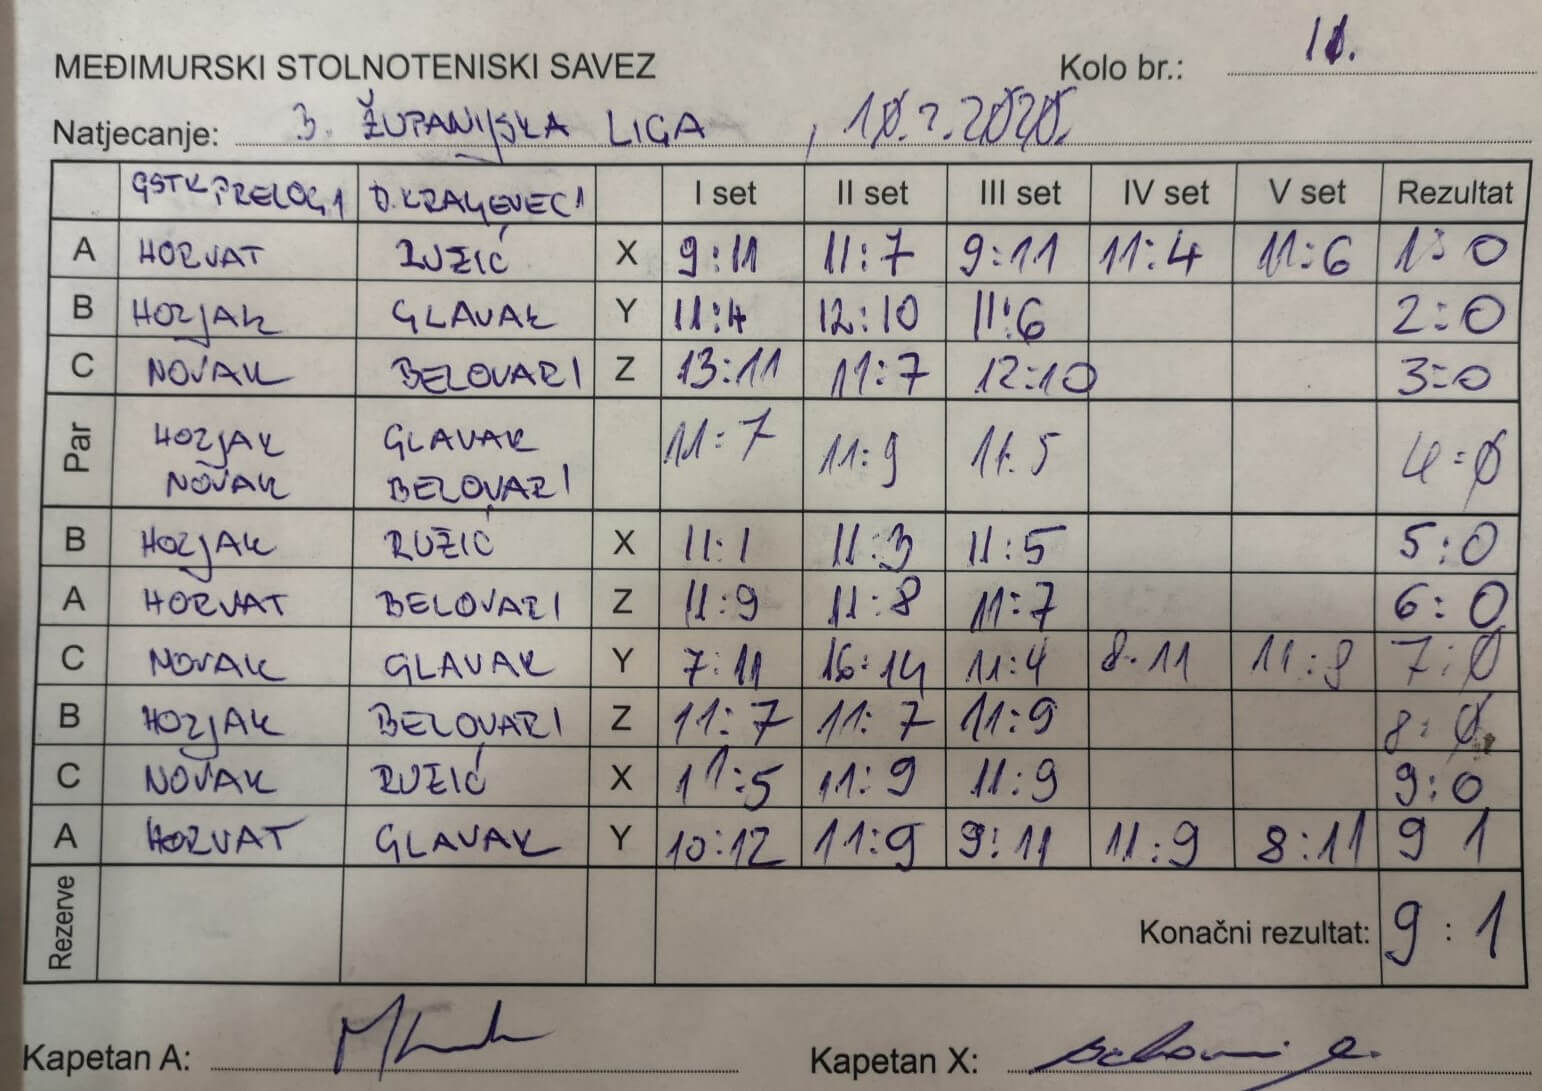 MEĐIMURSKI STOLNOTENISKI SAVEZ Kolo br.: 11.
Natjecanje: 3. ŽUPANIJSKA LIGA, 10.2.2020.
GSTK PRELOG 1 D.KRALJEVEC 1 I set II set III set IV set V set Rezultat
A HORVAT RUŽIĆ X 9:11 11:7 9:11 11:4 11:6 1:0
B HOZJAK GLAVAK Y 11:4 12:10 11:6 2:0
C NOVAK BELOVARI Z 13:11 11:7 12:10 3:0
Par HOZJAK GLAVAK 11:7 11:9 11:5 4:0
NOVAK BELOVARI
B HOZJAK RUŽIĆ X 11:1 11:3 11:5 5:0
A HORVAT BELOVARI Z 11:9 11:8 11:7 6:0
C NOVAK GLAVAK Y 7:11 16:14 11:4 8:11 11:8 7:0
B HOZJAK BELOVARI Z 11:7 11:7 11:9 8:0
C NOVAK RUŽIĆ X 11:5 11:9 11:9 9:0
A HORVAT GLAVAK Y 10:12 11:9 9:11 11:9 8:11 9 1
Rezerve Konačni rezultat: 9:1
Kapetan A: Kapetan X: